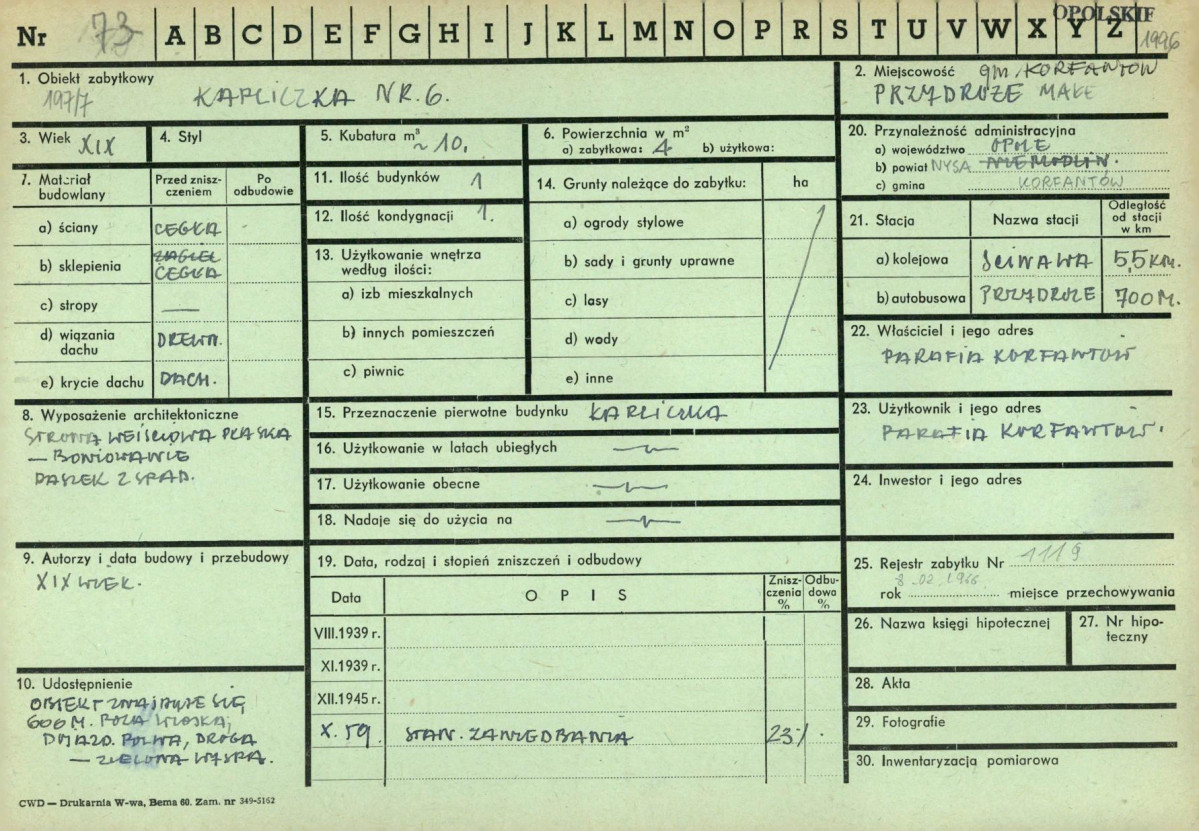 OPOLSKIE
Nr 73 A B C D E F G H I J K L M N O P R S T U V W X Y Z 1996
1. Obiekt zabytkowy
197/7 KAPLICZKA NR. 6.
2. Miejscowość gm. KORFANTÓW
PRZYDROŻE MAŁE
3. Wiek XIX
4. Styl
5. Kubatura m³ ~ 10.
6. Powierzchnia w m²
a) zabytkowa: 4 b) użytkowa:
20. Przynależność administracyjna
a) województwo OPOLE
b) powiat NYSA NIEMODLIN.
c) gmina KORFANTÓW
7. Materiał budowlany
Przed zniszczeniem
Po odbudowie
a) ściany CEGŁA
b) sklepienia ŻAGIEL
CEGŁA
c) stropy —
d) wiązania dachu DREWN.
e) krycie dachu DACH.
11. Ilość budynków 1
12. Ilość kondygnacji 1.
13. Użytkowanie wnętrza
według ilości:
a) izb mieszkalnych
b) innych pomieszczeń
c) piwnic
14. Grunty należące do zabytku: ha
a) ogrody stylowe
b) sady i grunty uprawne
c) lasy
d) wody
e) inne
21. Stacja Nazwa stacji Odległość od stacji w km
a) kolejowa ŚCINAWA 5,5 KM.
b) autobusowa PRZYDROŻE 700 M.
22. Właściciel i jego adres
PARAFIA KORFANTÓW
8. Wyposażenie architektoniczne
STRONA WEJŚCIOWA PŁASKA
— BONIOWANIE
DASZEK 2 SPAD.
15. Przeznaczenie pierwotne budynku KAPLICZKA
16. Użytkowanie w latach ubiegłych —"—
17. Użytkowanie obecne —"—
18. Nadaje się do użycia na —"—
23. Użytkownik i jego adres
PARAFIA KORFANTÓW.
24. Inwestor i jego adres
9. Autorzy i data budowy i przebudowy
XIX WIEK.
19. Data, rodzaj i stopień zniszczeń i odbudowy
Data OPIS Zniszczenia % Odbudowa %
VIII.1939 r.
XI.1939 r.
XII.1945 r.
X. 59 STAN. ZANIEDBANIA 23%
25. Rejestr zabytku Nr 1119
8.02.1966
rok miejsce przechowywania
26. Nazwa księgi hipotecznej
27. Nr hipoteczny
28. Akta
29. Fotografie
30. Inwentaryzacja pomiarowa
10. Udostępnienie
OBIEKT ZNAJDUJE SIĘ
600 M. POZA WIOSKĄ,
DOJAZD. POLNĄ, DROGĄ
— ZIELONA WYSPA.
CWD — Drukarnia W-wa, Bema 60. Zam. nr 349-5162